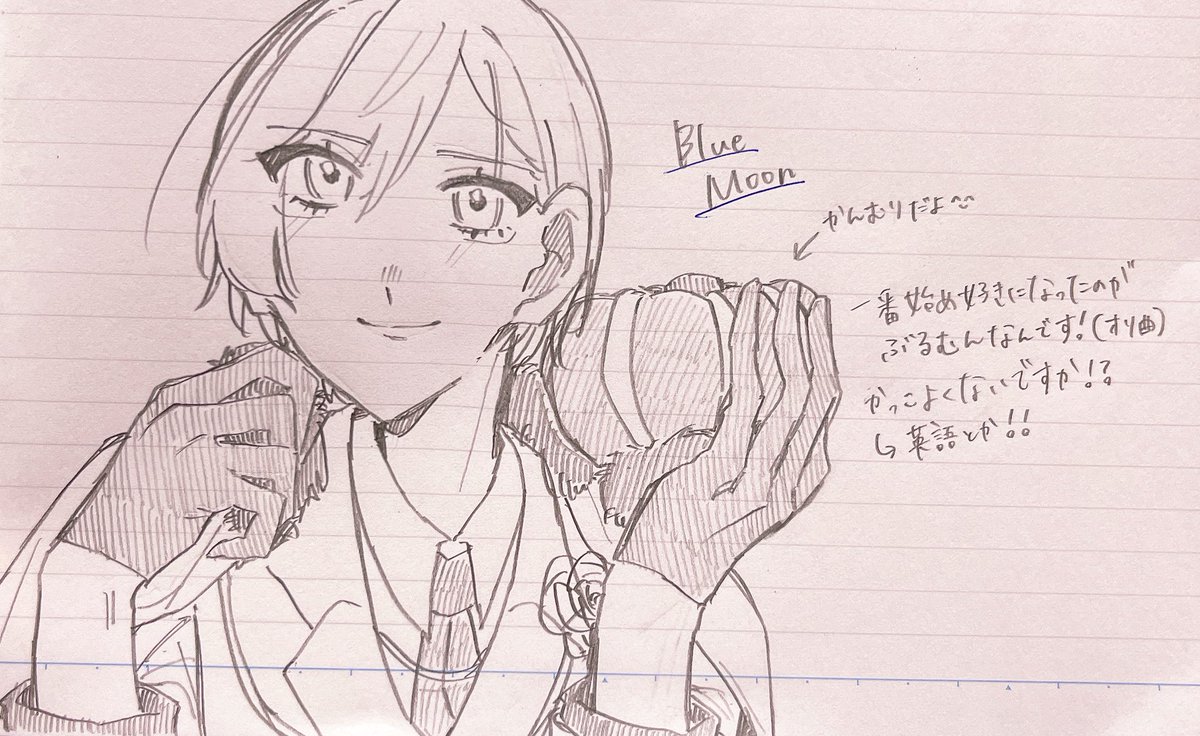 Blue
Moon
かんむりだよ
一番始め好きになったのが
ぶるむんなんです!(オリ曲)
かっこよくないですか!?
↳英語とか!!